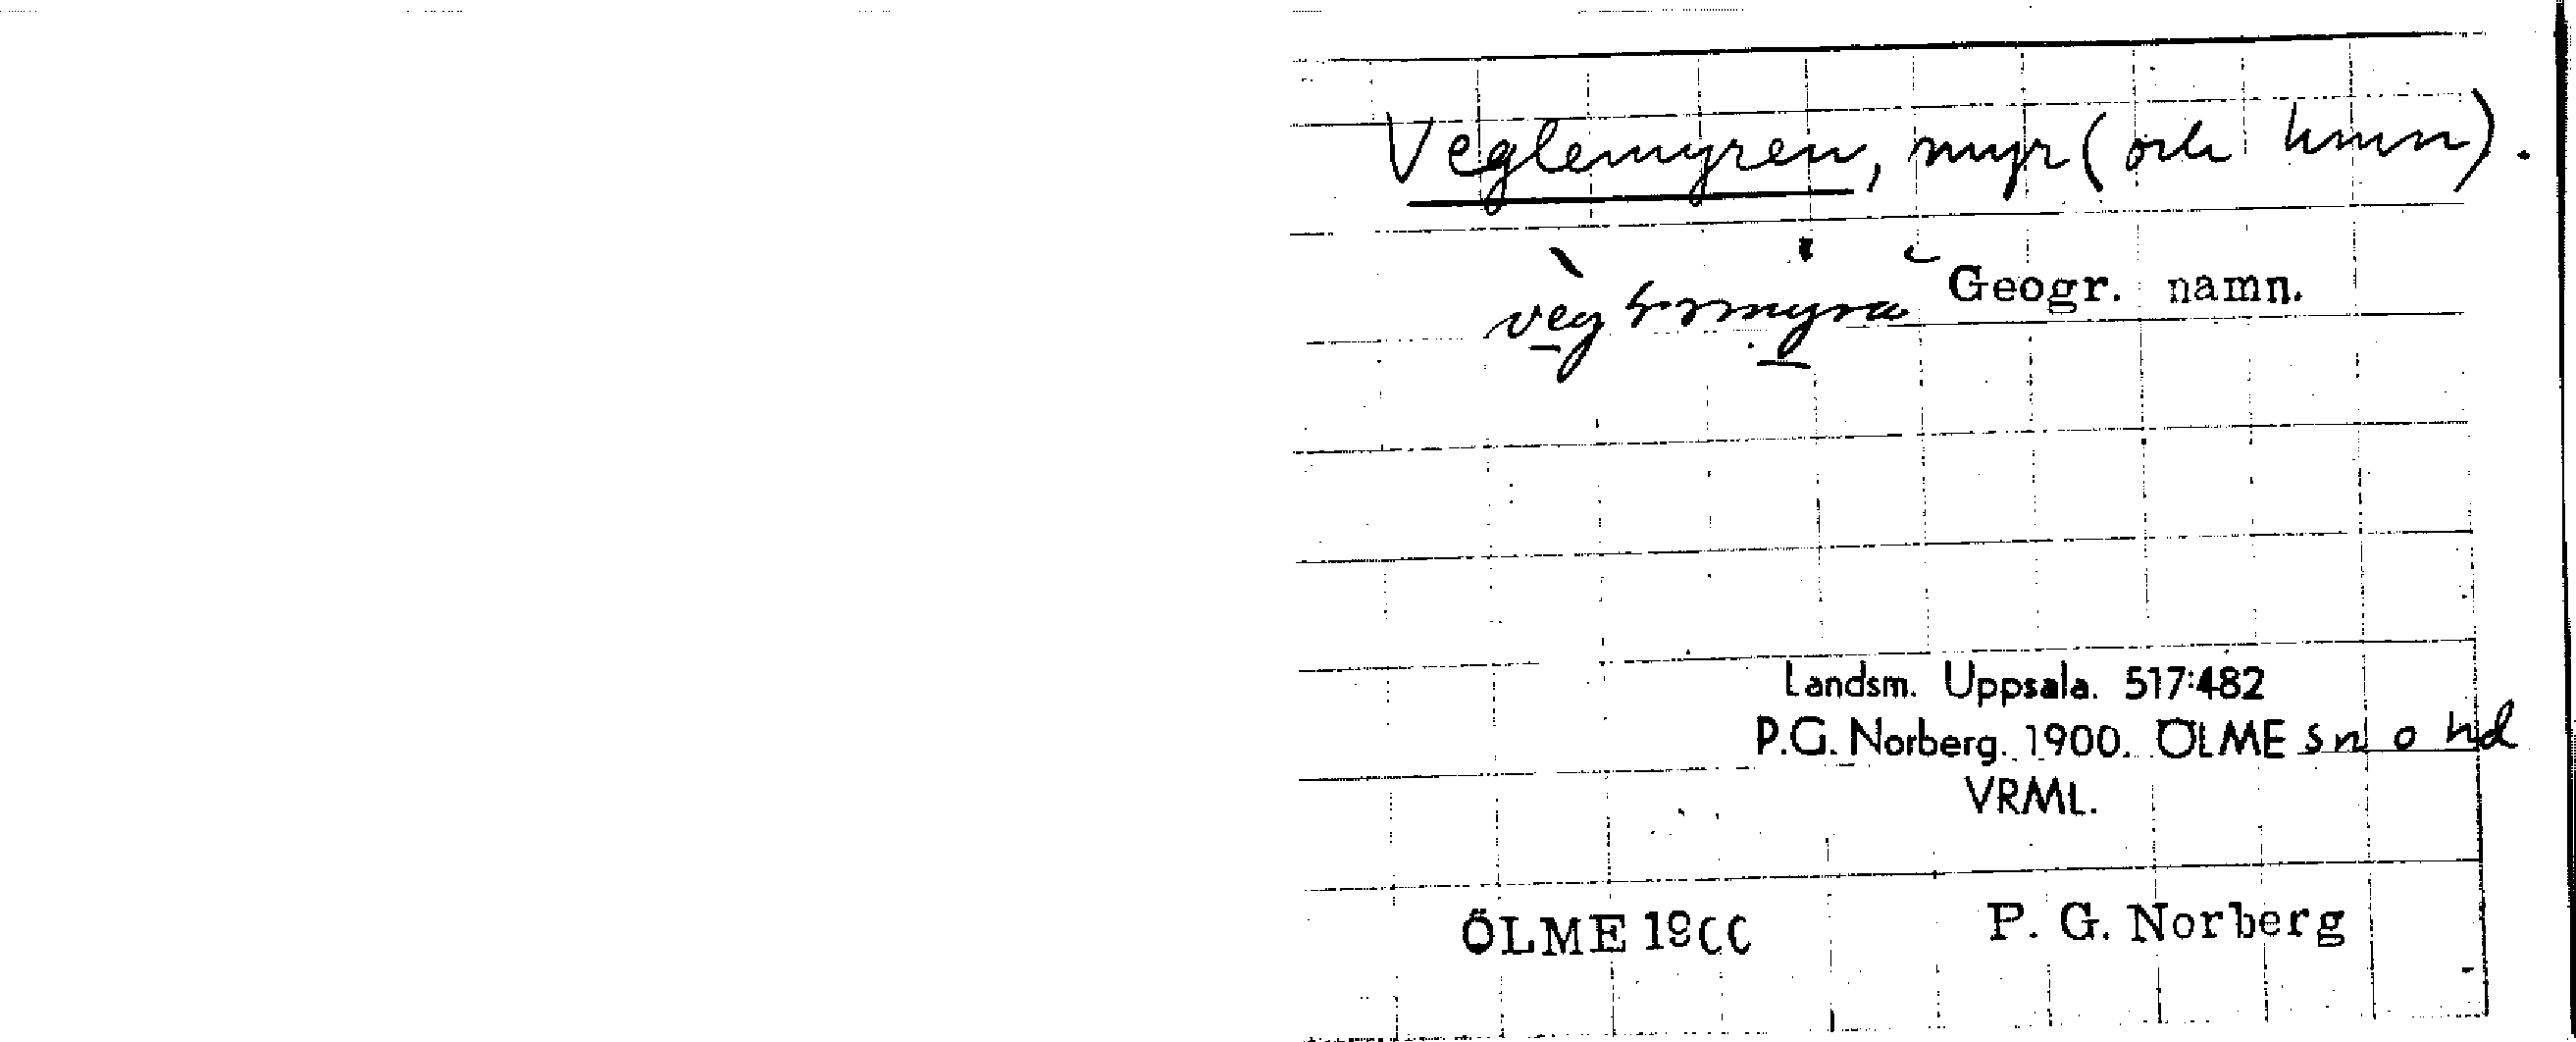 Veglemyren, myr (och hmn).
Geogr. namn.
Landsm. Uppsala. 517:482
P.G. Norberg. 1900. ÖLME sn o hd
VRML.
ÖLME 1900 P. G. Norberg